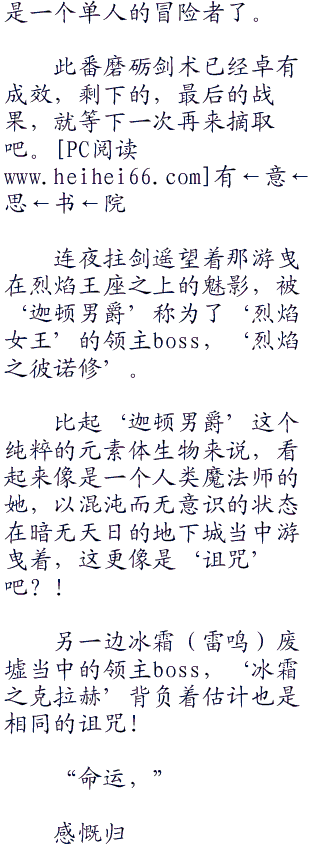 是一个单人的冒险者了。
此番磨砺剑术已经卓有
成效，剩下的，最后的战
果，就等下一次再来摘取
吧。[PC阅读
www.heihei66.com]有←意←
思←书←院
连夜拄剑遥望着那游曳
在烈焰王座之上的魅影，被
‘迦顿男爵’称为了‘烈焰
女王’的领主boss，‘烈焰
之彼诺修’。
比起‘迦顿男爵’这个
纯粹的元素体生物来说，看
起来像是一个人类魔法师的
她，以混沌而无意识的状态
在暗无天日的地下城当中游
曳着，这更像是‘诅咒’
吧？！
另一边冰霜（雷鸣）废
墟当中的领主boss，‘冰霜
之克拉赫’背负着估计也是
相同的诅咒！
“命运，”
感慨归